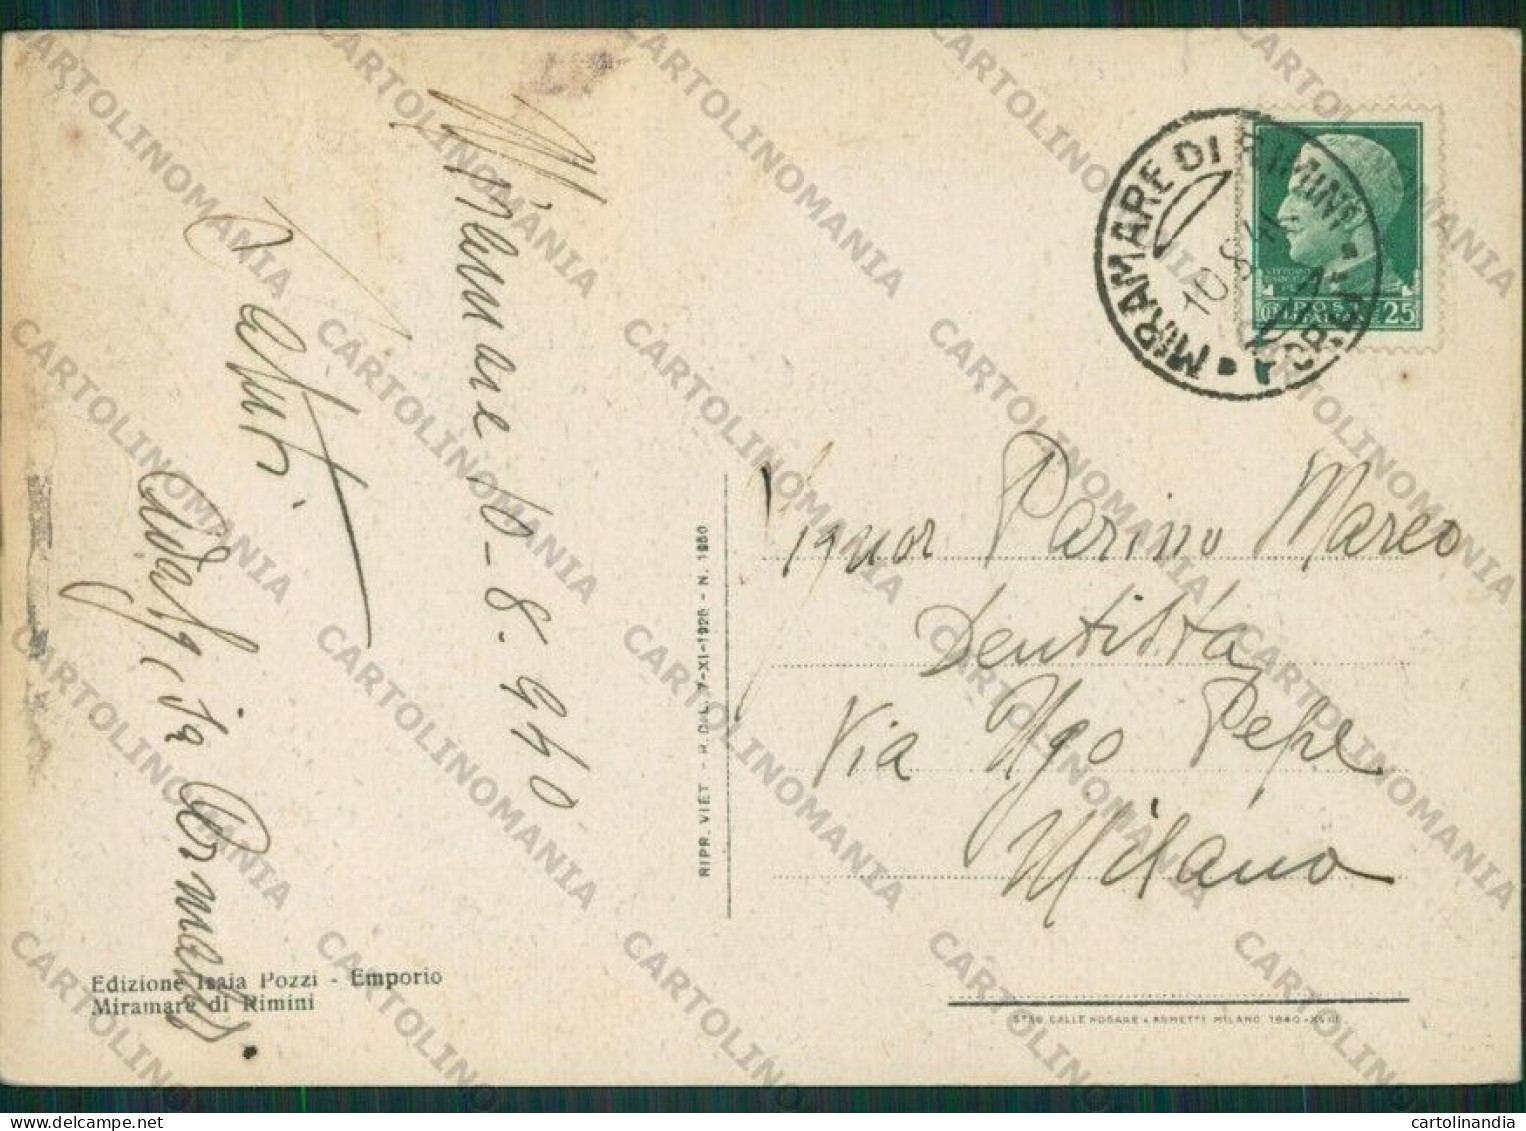 Miramare 10-8-940
Saluti
MIRAMARE DI RIMINI
FORLI
10 8
25
Signor Parino Marco
Dentista
Via Ugo Pepe
Milano
RIPR. VIET. - R. D. L. 7-XI-1925 - N. 1950
Edizione Isaia Pozzi - Emporio
Miramare di Rimini
STAB. DALLE NOGARE & ARMETTI MILANO 1940-XVIII
CARTOLINOMANIA
cartolinandia